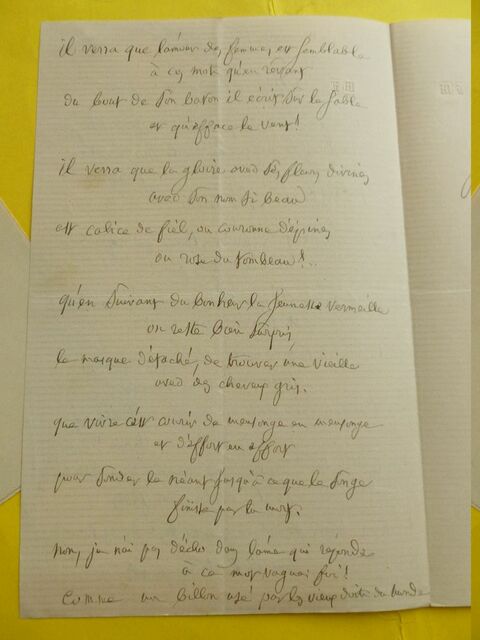 il verra que l'amour des femmes est semblable
à ces mots qu'en rêvant
du bout de son baton il écrit sur le sable
et qu'efface le vent!
il verra que la gloire avec ses fleurs divines
avec son nom si beau
est calice de fiel, ou couronne d'épines
ou rose du tombeau!..
qu'en suivant du bonheur la jeunesse vermeille
on reste bien surpris,
le masque détaché, de trouver une vieille
avec des cheveux gris.
que vivre c'est courir de mensonge en mensonge
et d'effort en effort
pour sonder le néant jusqu'à ce que le songe
finisse par la mort.
non, je n'ai pas d'écho dans l'âme qui réponde
à ce mot vague
Comme un billon usé par les vieux doits du monde